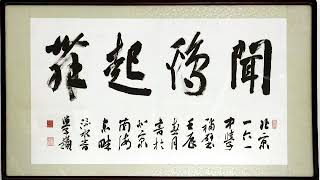 聞鷄起舞
北京
一六一
中學
補壁
壬辰
月
書於
北京
南海
東畔
流水音